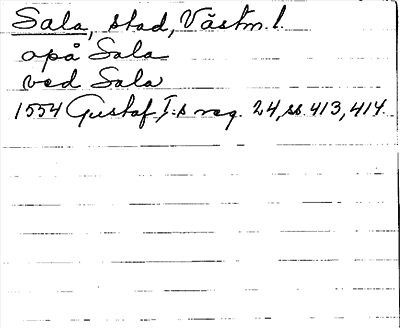 Sala, stad, Västm. l.
opå Sala
ved Sala
1554 Gustaf I:s reg. 24, ss. 413, 414.